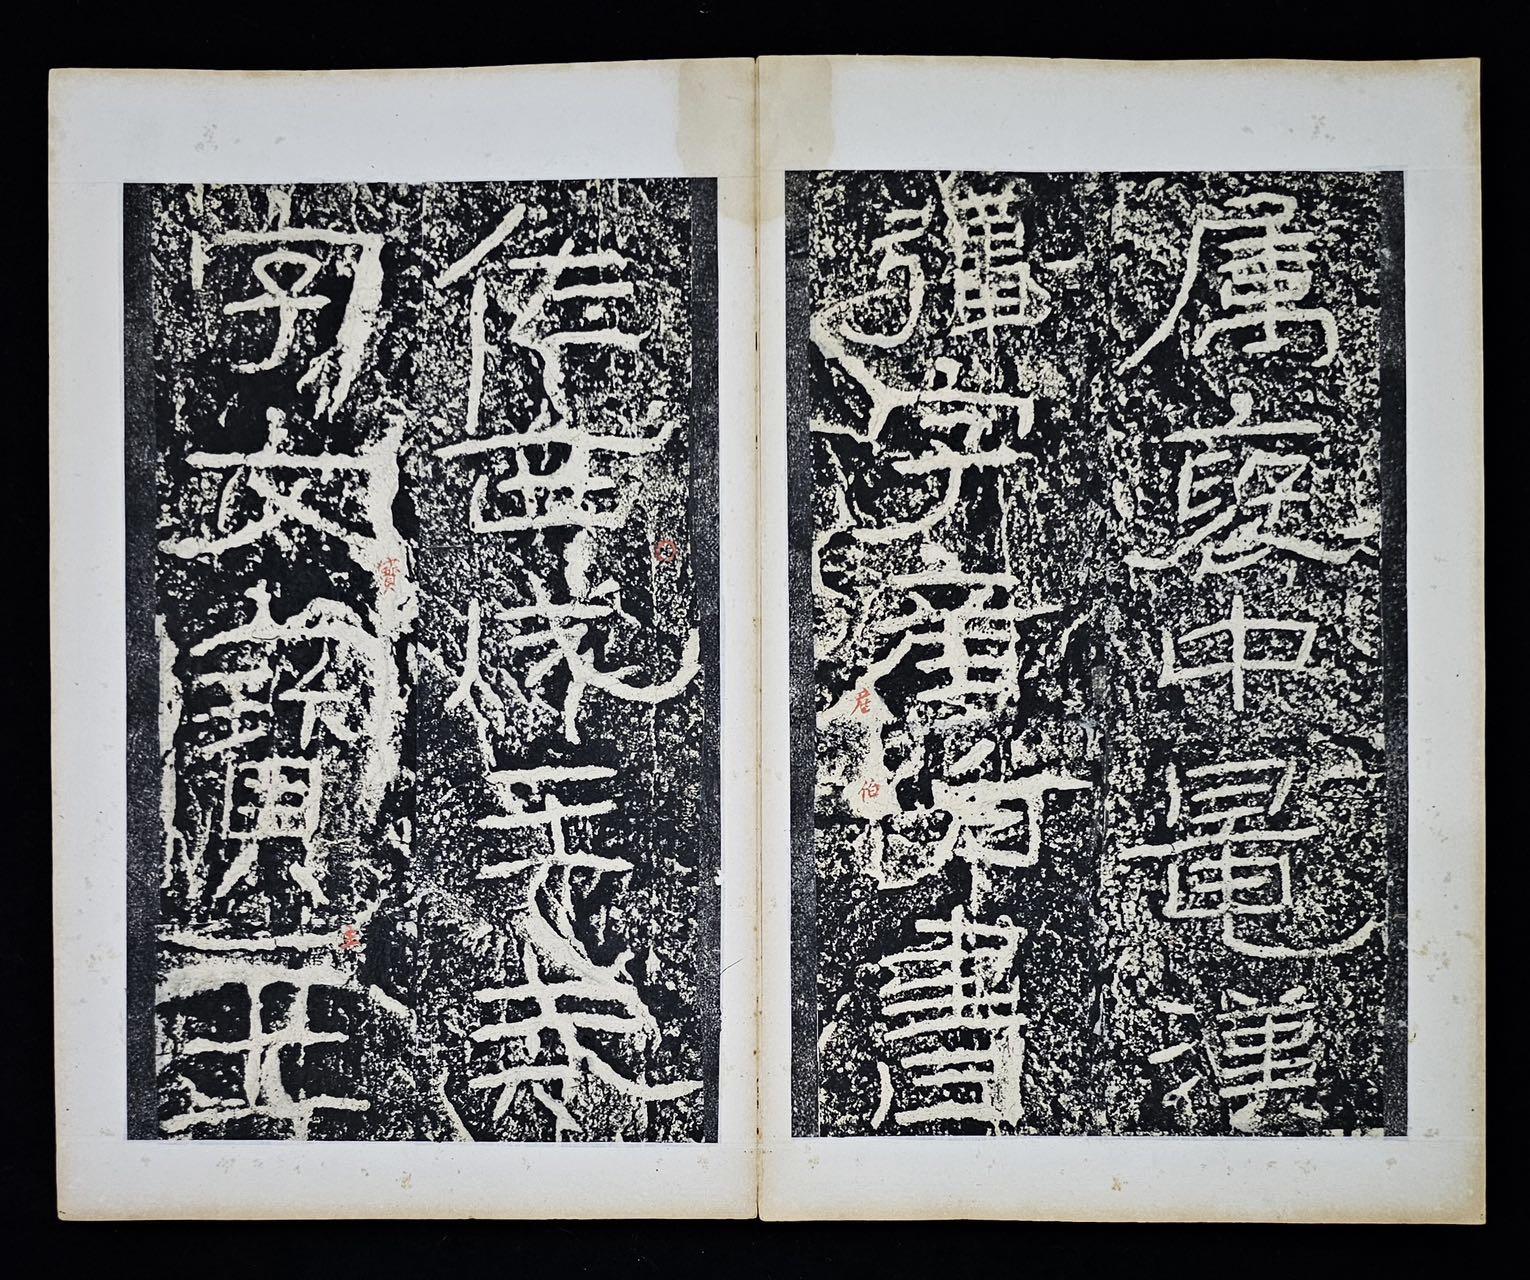 屬褒中鼂漢
彊字產伯書
產
伯
佐西成王戒
字文寶主
寶
主